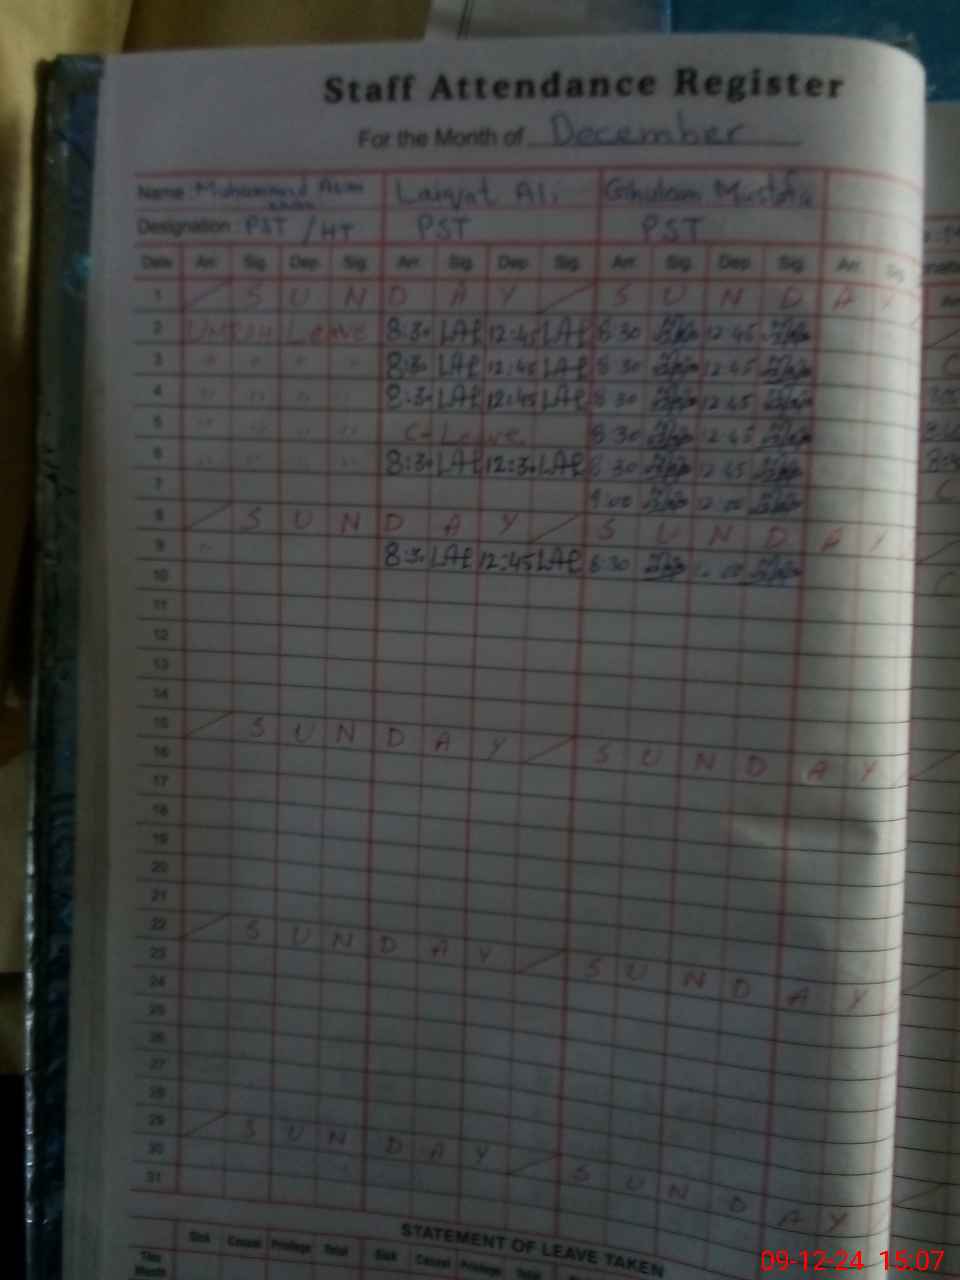 Staff Attendance Register
For the Month of December
Name: Muhammad Laiqat Ali Ghulam Mustafa
Designation: PST / HT PST PST
Date Arr. Sig. Dep. Sig. Arr. Sig. Dep. Sig. Arr. Sig. Dep. Sig. Arr. Sig.
1 S U N D A Y S U N D A Y
2 Leave 8:30 LAl 12:45 LAl 8:30 12:45
3 " " " " 8:30 LAl 12:45 LAl 8:30 12:45
4 " " " " 8:30 LAl 12:45 LAl 8:30 12:45
5 " " " " C-Leave 8:30 12:45
6 " " " " 8:30 LAl 12:30 LAl 8:30 12:45
7 9:00 12:00
8 S U N D A Y S U N D A Y
9 " 8:30 LAl 12:45 LAl 8:30
10
11
12
13
14
15 S U N D A Y S U N D A Y
16
17
18
19
20
21
22 S U N D A Y S U N D A Y
23
24
25
26
27
28
29 S U N D A Y S U N D A Y
30
31
STATEMENT OF LEAVE TAKEN
Sick Casual Privilege Total Sick Casual Privilege Total
This Month
09-12-24 15:07